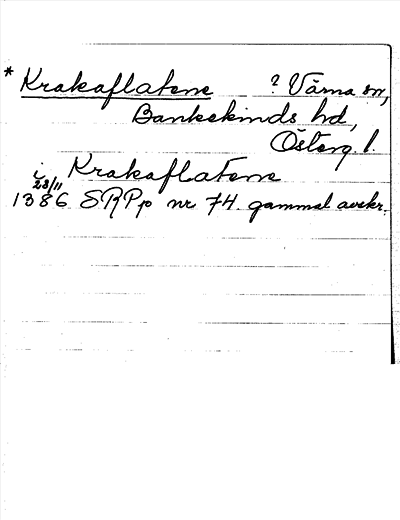 * Krakaflatene ? Värna sn,
Bankekinds hd,
Österg. l.
i Krakaflatene
23/11
1386 SRPp nr 74. gammal avskr.